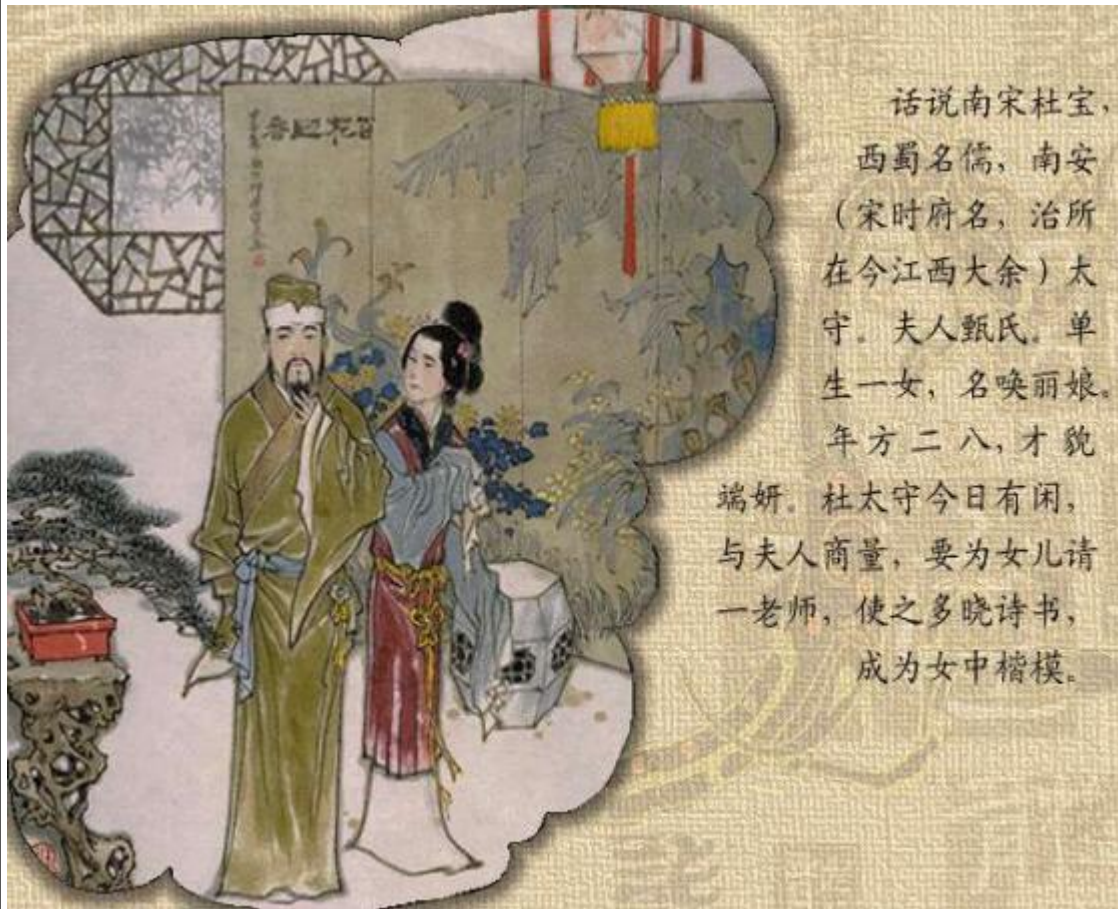 话说南宋杜宝，
西蜀名儒，南安
（宋时府名，治所
在今江西大余）太
守。夫人甄氏。单
生一女，名唤丽娘。
年方二八，才貌
端妍。杜太守今日有闲，
与夫人商量，要为女儿请
一老师，使之多晓诗书，
成为女中楷模。